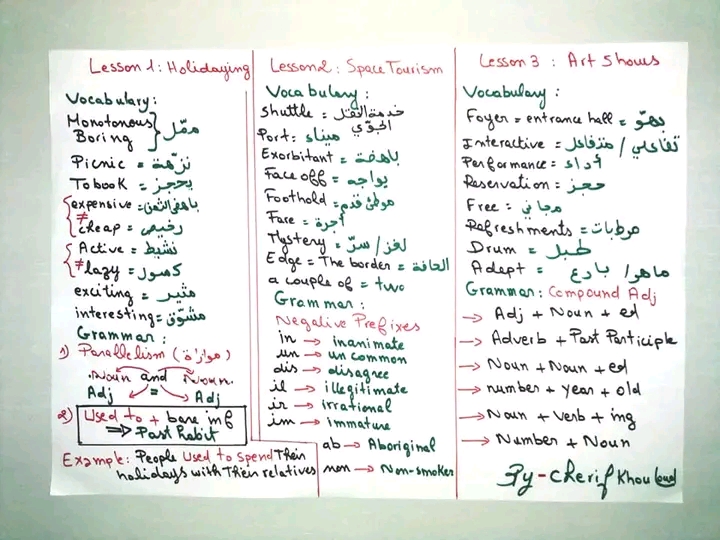 Lesson 1: Holidaying
Vocabulary:
Monotonous
Boring } مملّ
Picnic = نزهة
To book = يحجز
expensive = باهض الثمن
≠
cheap = رخيص
Active = نشيط
≠
lazy = كسول
exciting = مثير
interesting = مشوّق
Grammar:
1) Parallelism (موازاة)
Noun and Noun.
Adj = Adj
2) Used to + bare inf
⇒ Past habit
Example: People Used to spend Their
holidays with Their relatives
Lesson 2: Space Tourism
Vocabulary:
Shuttle = خدمة النقل
الجوّي
Port: ميناء
Exorbitant = باهضة
Face off = يواجه
Foothold = موطئ قدم
Fare = أجرة
Mystery = لغز / سرّ
Edge = The border = الحافة
a couple of = two
Grammar:
Negative Prefixes
in → inanimate
un → uncommon
dis → disagree
il → illegitimate
ir → irrational
im → immature
ab → Aboriginal
non → Non-smoker
Lesson 3: Art Shows
Vocabulary:
Foyer = entrance hall = بهوّ
Interactive = تفاعلي / متفاعل
Performance = أداء
Reservation = حجز
Free = مجاني
Refreshments = مرطبات
Drum = طبل
Adept = ماهر / بارع
Grammar: Compound Adj
→ Adj + Noun + ed
→ Adverb + Past Participle
→ Noun + Noun + ed
→ number + year + old
→ Noun + Verb + ing
→ Number + Noun
By - cherif Khouloud